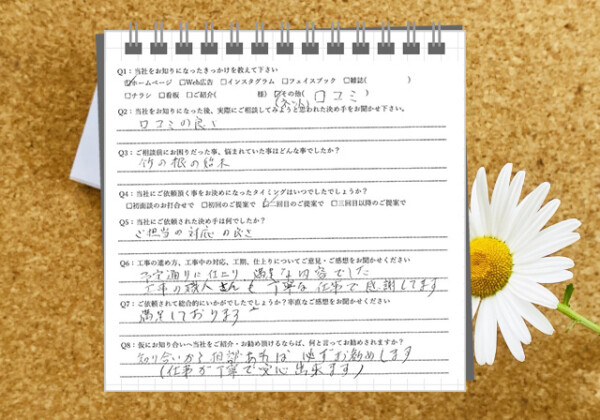 Q1：当社をお知りになったきっかけを教えて下さい
☑ホームページ □Web広告 □インスタグラム □フェイスブック □雑誌(　　　)
□チラシ □看板 □ご紹介(　　　様) ☑その他( 口コミ )
(ネット)
Q2：当社をお知りになった後、実際にご相談してみようと思われた決め手をお聞かせ下さい。
口コミの良さ
Q3：ご相談前にお困りだった事、悩まれていた事はどんな事でしたか？
竹の根の始末
Q4：当社にご依頼頂く事をお決めになったタイミングはいつでしたでしょうか？
□初面談のお打合せで □初回のご提案で ☑二回目のご提案で □三回目以降のご提案で
Q5：当社にご依頼された決め手は何でしたか？
ご担当の対応の良さ
Q6：工事の進め方、工事中の対応、工期、仕上りについてご意見・ご感想をお聞かせください
通りに仕上り 満足な内容でした
工事の職人さんも丁寧な仕事で感謝してます
Q7：ご依頼されて総合的にいかがでしたでしょうか？率直なご感想をお聞かせください
満足しております
Q8：仮にお知り合いへ当社をご紹介・お勧め頂けるならば、何と言ってお勧めされますか？
知り合いから相談あれば 必ずお勧めします
(仕事が丁寧で安心出来ます)